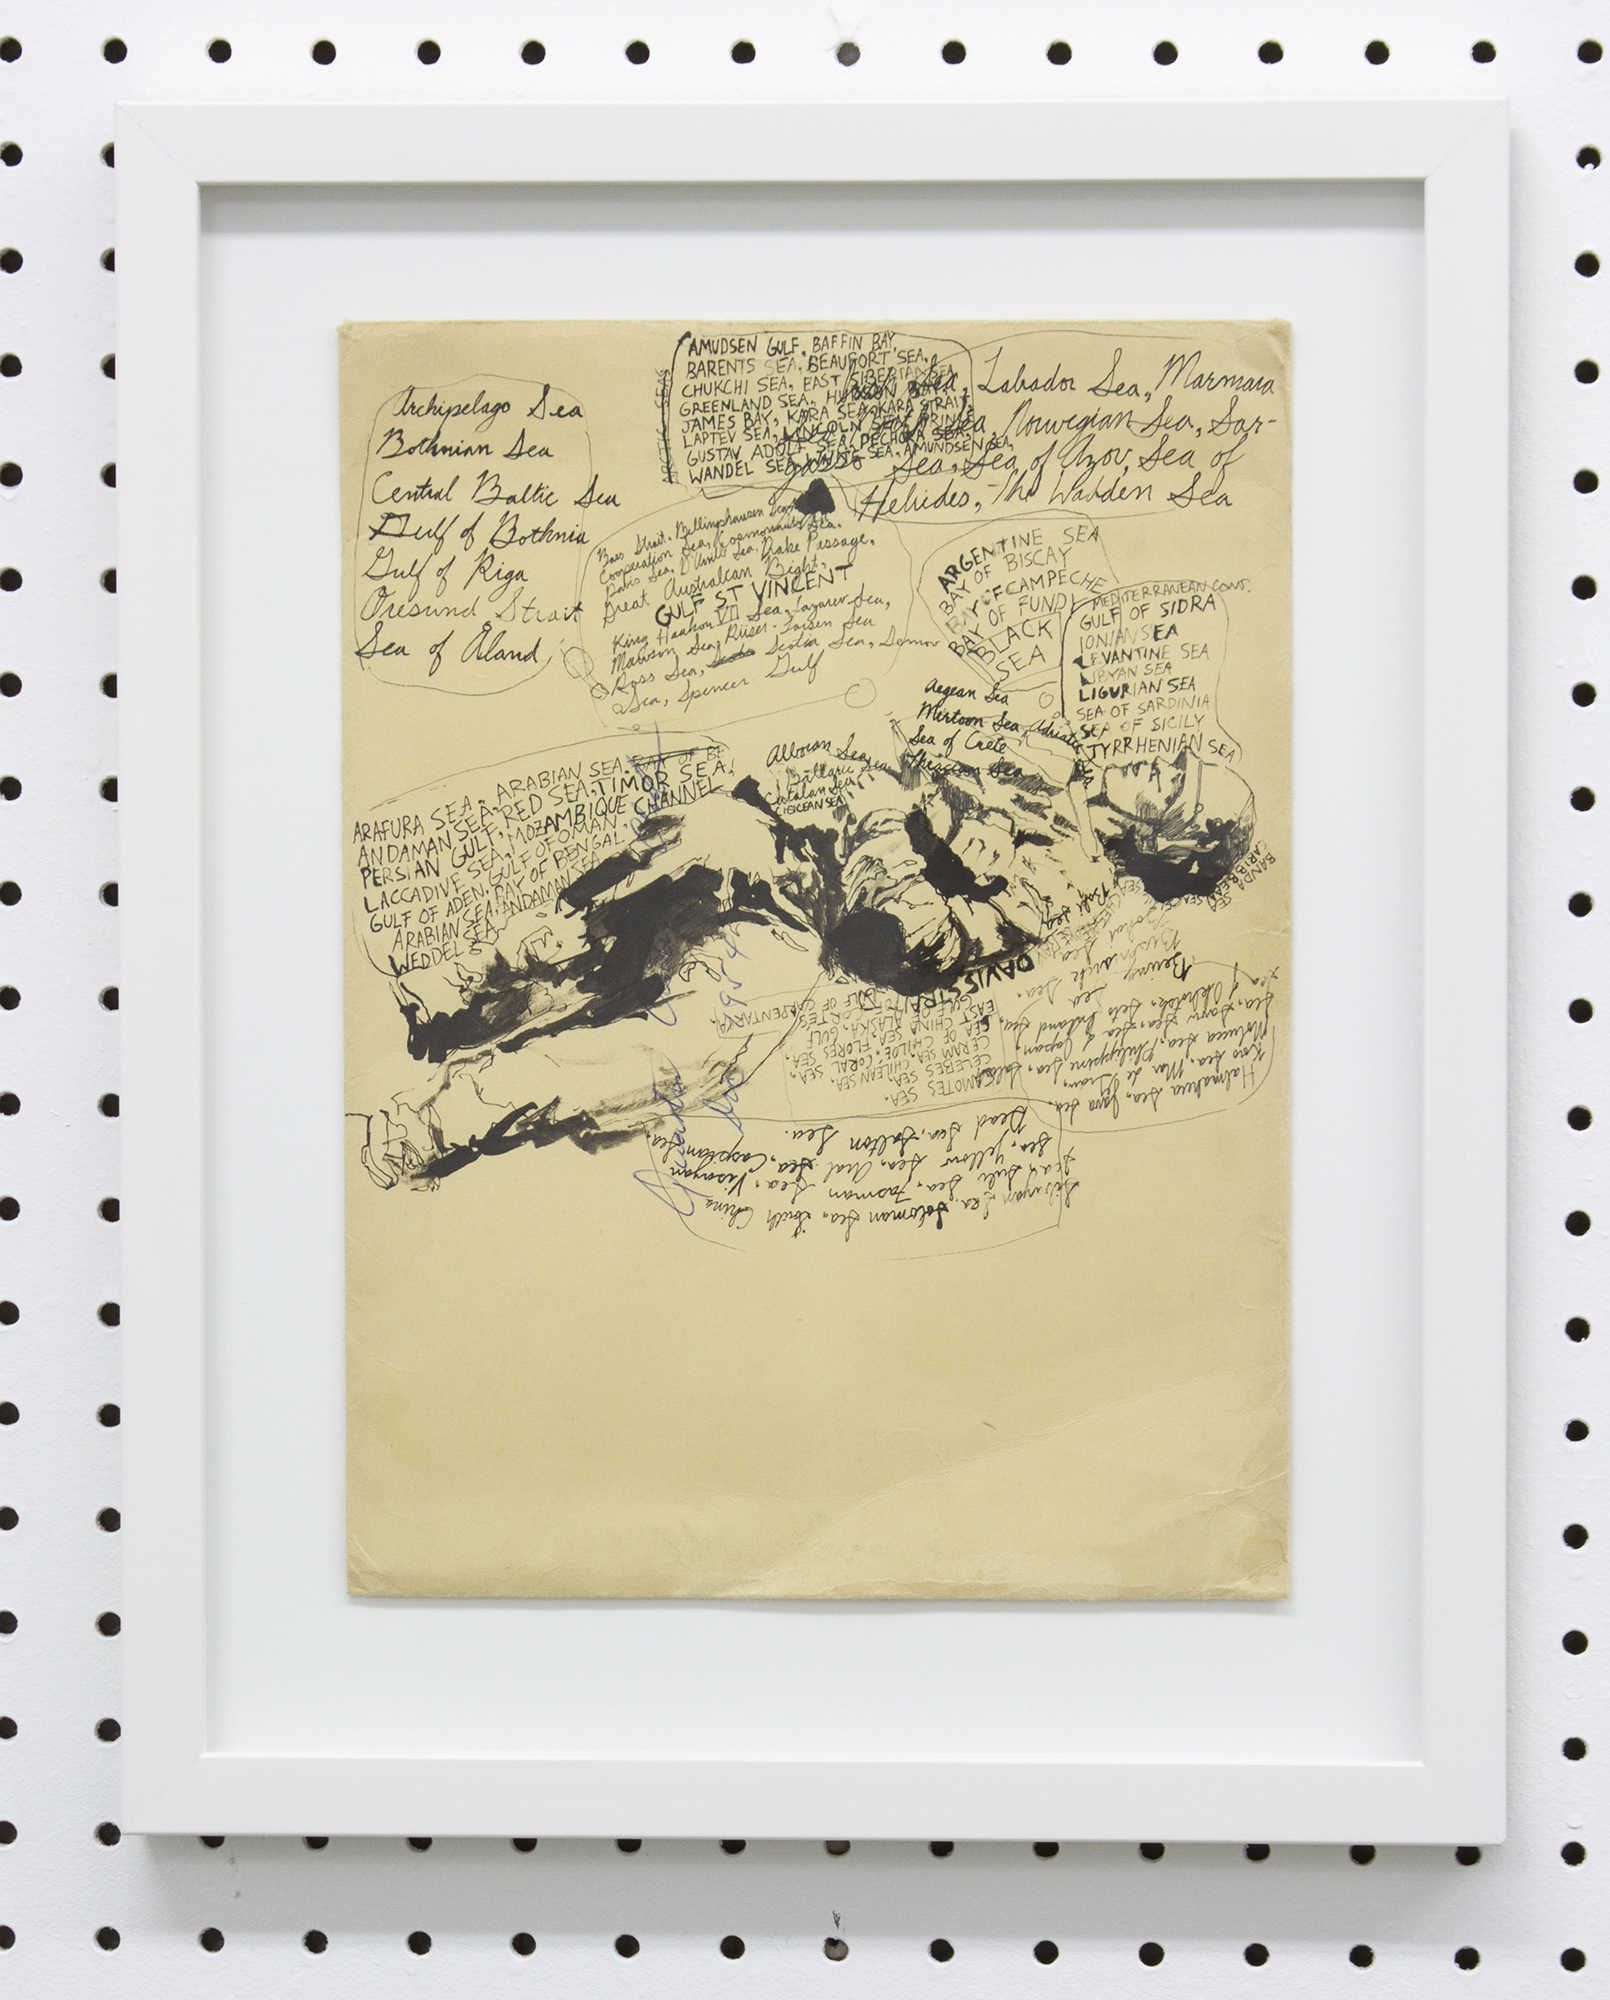 Archipelago Sea
Bothnian Sea
Central Baltic Sea
Gulf of Bothnia
Gulf of Riga
Oresund Strait
Sea of Åland
ARCTIC SEAS
AMUDSEN GULF, BAFFIN BAY,
BARENTS SEA, BEAUFORT SEA,
CHUKCHI SEA, EAST SIBERIAN SEA
GREENLAND SEA, HUDSON BAY,
JAMES BAY, KARA SEA, KARA STRAIT,
LAPTEV SEA, LINCOLN SEA, PRINCE
GUSTAV ADOLF SEA, PECHORA SEA,
WANDEL SEA, WHITE SEA, AMUNDSEN SEA,
Sea, Labador Sea, Marmara
Sea, Norwegian Sea, Sar-
Sea, Sea of Azov, Sea of
Hebides, The Wadden Sea
Bass Strait, Bellingshausen Sea,
Cooperation Sea, Kosmonauts Sea,
Davis Sea, D'Urville Sea, Drake Passage,
Great Australean Bight,
GULF ST VINCENT
King Haakon VII Sea, Lazarev Sea,
Mawson Sea, Riiser-Larsen Sea
Ross Sea, Scotia Sea, Somov
Sea, Spencer Gulf
ARGENTINE SEA
BAY OF BISCAY
BAY OF CAMPECHE
BAY OF FUNDY
BLACK
SEA
MEDITERRANEAN CONT.
GULF OF SIDRA
IONIAN SEA
LEVANTINE SEA
LIBYAN SEA
LIGURIAN SEA
SEA OF SARDINIA
SEA OF SICILY
TYRRHENIAN SEA
Aegean Sea
Mirtoon Sea, Adriatic
Sea of Crete
Thracian Sea
Alboran Sea
Balearic Sea
Catalan Sea
CILICEAN SEA
ARAFURA SEA, ARABIAN SEA, BAY OF BE
ANDAMAN SEA, RED SEA, TIMOR SEA,
PERSIAN GULF, MOZAMBIQUE CHANNEL
LACCADIVE SEA, GULF OF OMAN,
GULF OF ADEN, BAY OF BENGAL,
ARABIAN SEA, ANDAMAN SEA
WEDDEL SEA
BANDA SEA
CARIBBEAN SEA
Bali Sea
CHESAPEAKE BAY
Bohol Sea
Bering Sea
DAVIS STRAIT
EAST CHINA SEA, FLORES SEA,
GULF OF ALASKA, GULF
OF CARPENTARIA,
CAMOTES SEA,
CELEBES SEA, CHILEAN SEA,
CERAM SEA, CORAL SEA,
SEA OF CHILOE,
Halmahera Sea, Java Sea,
Koro Sea, Mar de Grau,
Molucca Sea, Philippine Sea, Salish
Sea, Savu Sea, Sea of Japan,
Sea of Okhotsk, Seto Inland Sea,
Sibuyan Sea, Soloman Sea, South China
Sea, Sulu Sea, Tasman Sea, Visayan
Sea, Yellow Sea, Aral Sea, Caspian Sea,
Dead Sea, Salton Sea.
1954